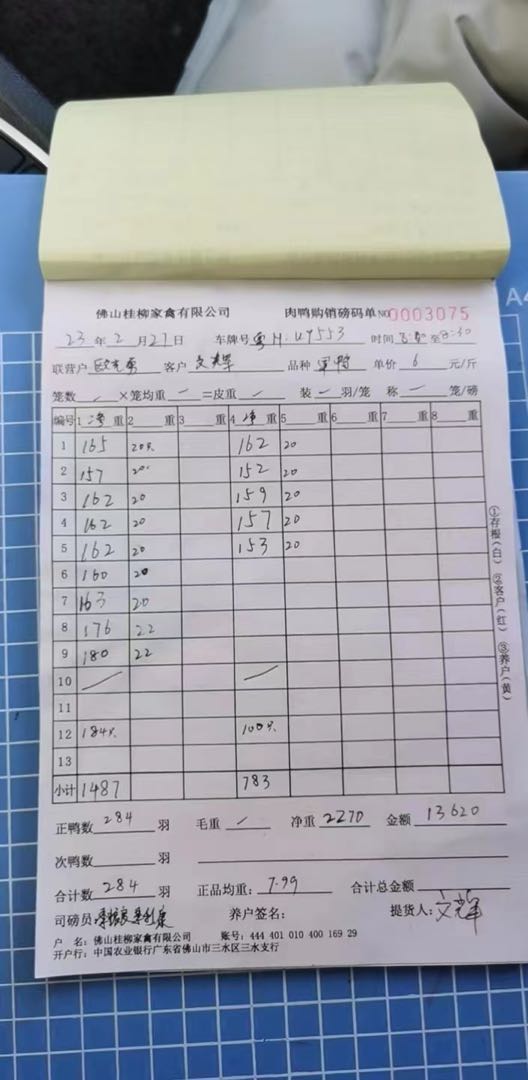 A4
佛山桂柳家禽有限公司 肉鸭购销磅码单 NO 0003075
23 年 2 月 27 日 车牌号 粤H· 时间 至 8:30
联营户 客户 文光军 品种 军鸭 单价 6 元/斤
笼数 / ×笼均重 — =皮重 / 装 — 羽/笼 称 — 笼/磅
编号 1 净 重 2 重 3 重 4 净 重 5 重 6 重 7 重 8 重
1 165 20只 162 20
2 157 20 152 20
3 162 20 159 20
4 162 20 157 20
5 162 20 153 20
6 160 20
7 163 20
8 176 22
9 180 22
10 / /
11
12 184只 100只
13
小计 1487 783
①存根(白) ②客户(红) ③养户(黄)
正鸭数 284 羽 毛重 / 净重 2270 金额 13620
次鸭数 羽
合计数 284 羽 正品均重: 7.99 合计总金额
司磅员: 养户签名: 提货人:
户 名: 佛山桂柳家禽有限公司 账号: 444 401 010 400 169 29
开户行: 中国农业银行广东省佛山市三水区三水支行